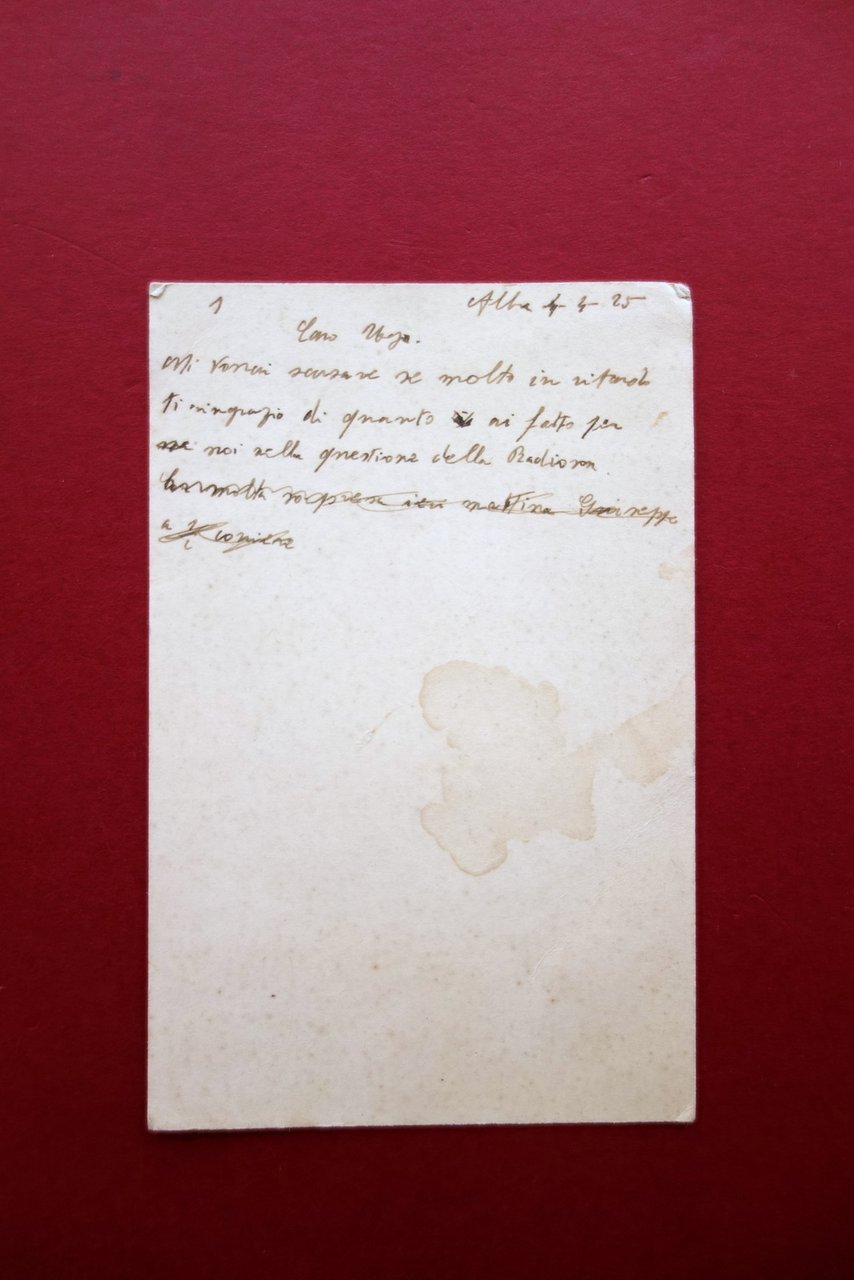 1 Alba 4-4-25
Caro Ugo.
Mi vorrai scusare se molto in ritardo
ti ringrazio di quanto ai fatto per
me noi nella questione della Radioson.
molto ieri mattina Giuseppe
a